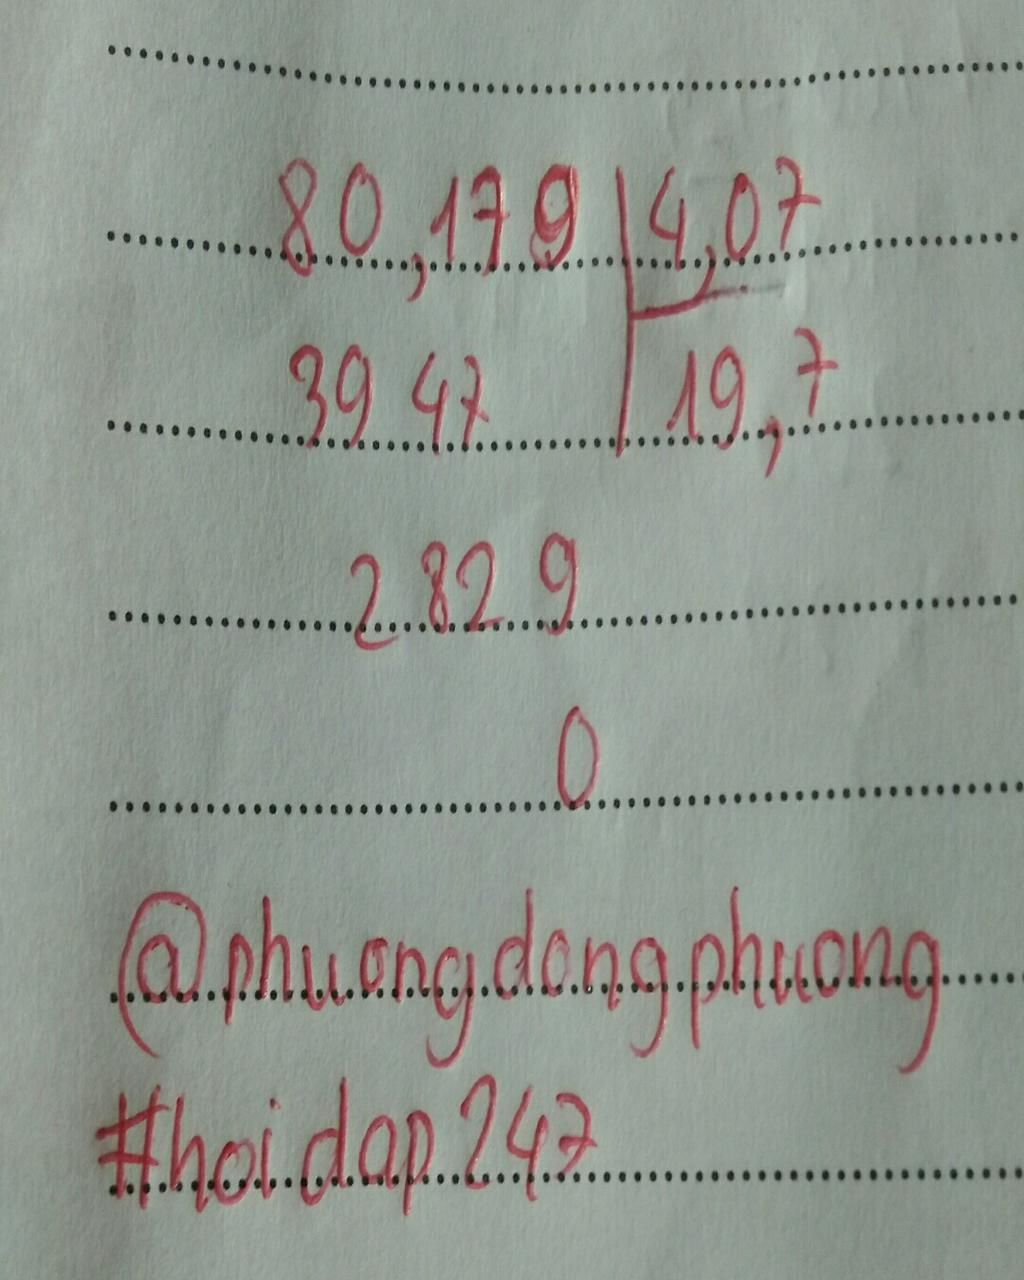 80,179 4,07
39 47 19,7
2 82 9
0
@phuongdongphuong
#hoidap247